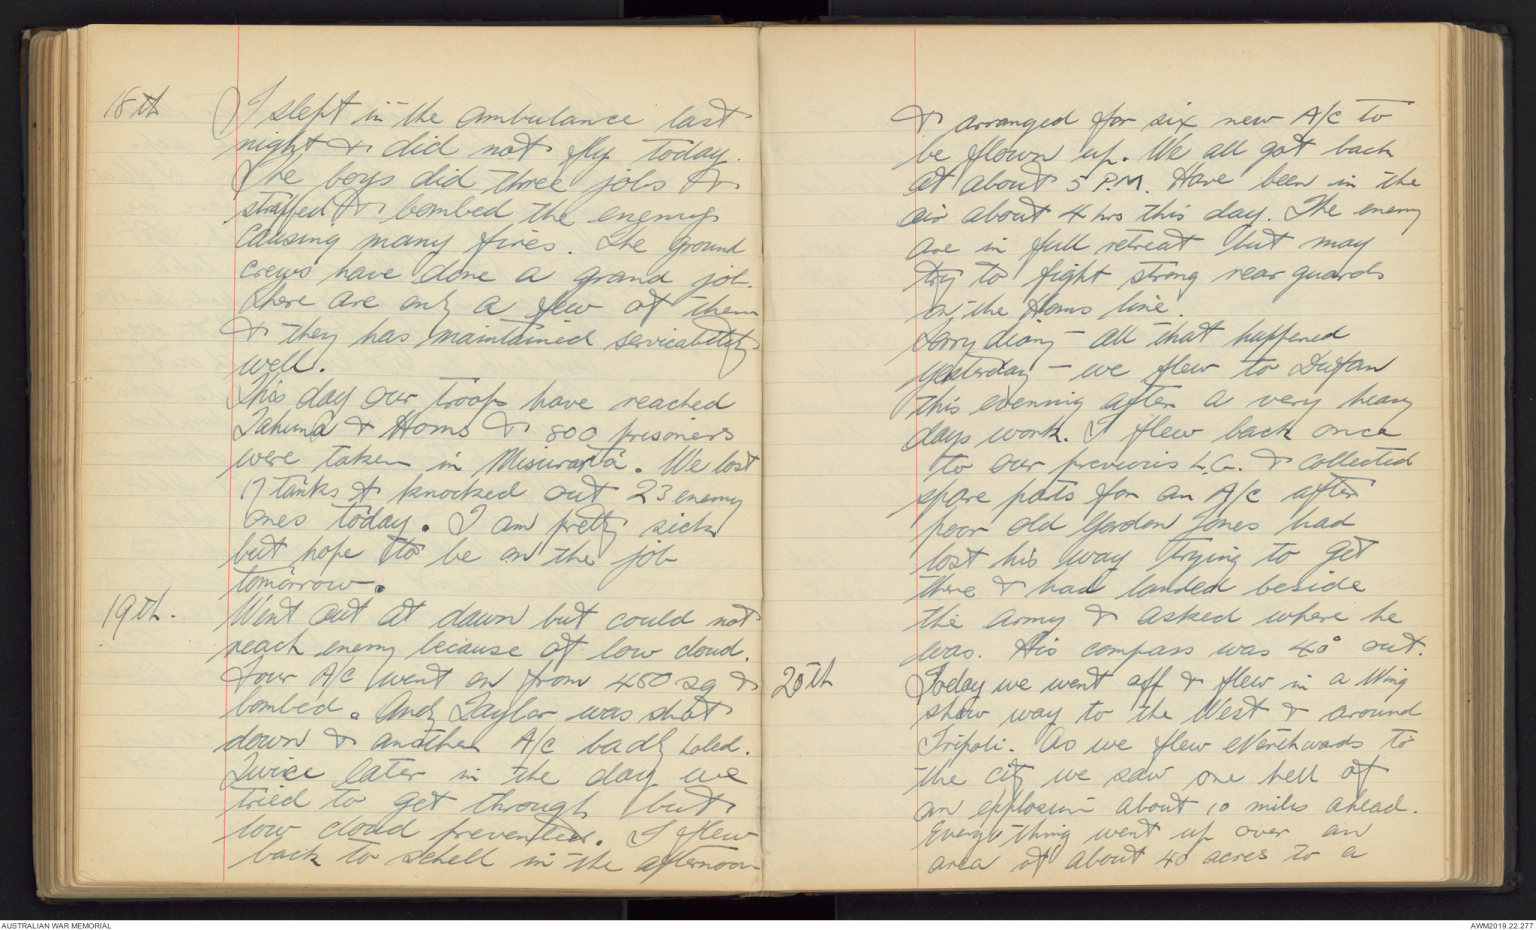 18th I slept in the ambulance last
night & did not fly today.
The boys did three jobs &
straffed & bombed the enemy
causing many fires. The ground
crews have done a grand job.
There are only a few of them
& they has maintained servicability
well.
This day our troops have reached
Tahuna & Homs & 800 prisoners
were taken in Misurata. We lost
17 tanks & knocked out 23 enemy
ones today. I am pretty sick
but hope to be on the job
tomorrow.
19th. Went out at dawn but could not
reach enemy because of low cloud.
Four A/c went on from 450 sq &
bombed. Andy Taylor was shot
down & another A/c badly holed.
Twice later in the day we
tried to get through but
low cloud prevented. I flew
back to Schell in the afternoon
& arranged for six new A/c to
be flown up. We all got back
at about 5 P.M. Have been in the
air about 4 hrs this day. The enemy
are in full retreat but may
try to fight strong rear guards
on the Homs line.
Sorry diary - all that happened
yesterday - we flew to Dufan
this evening after a very heavy
days work. I flew back once
to our previous L.G. & collected
spare parts for an A/c after
poor old Gordon Jones had
lost his way trying to get
there & had landed beside
the army & asked where he
was. His compass was 40° out.
20th Today we went off & flew in a Wing
show way to the West & around
Tripoli. As we flew Northwards to
the city we saw one hell of
an explosion about 10 miles ahead.
Everything went up over an
area of about 40 acres to a
AUSTRALIAN WAR MEMORIAL
AWM2019.22.277